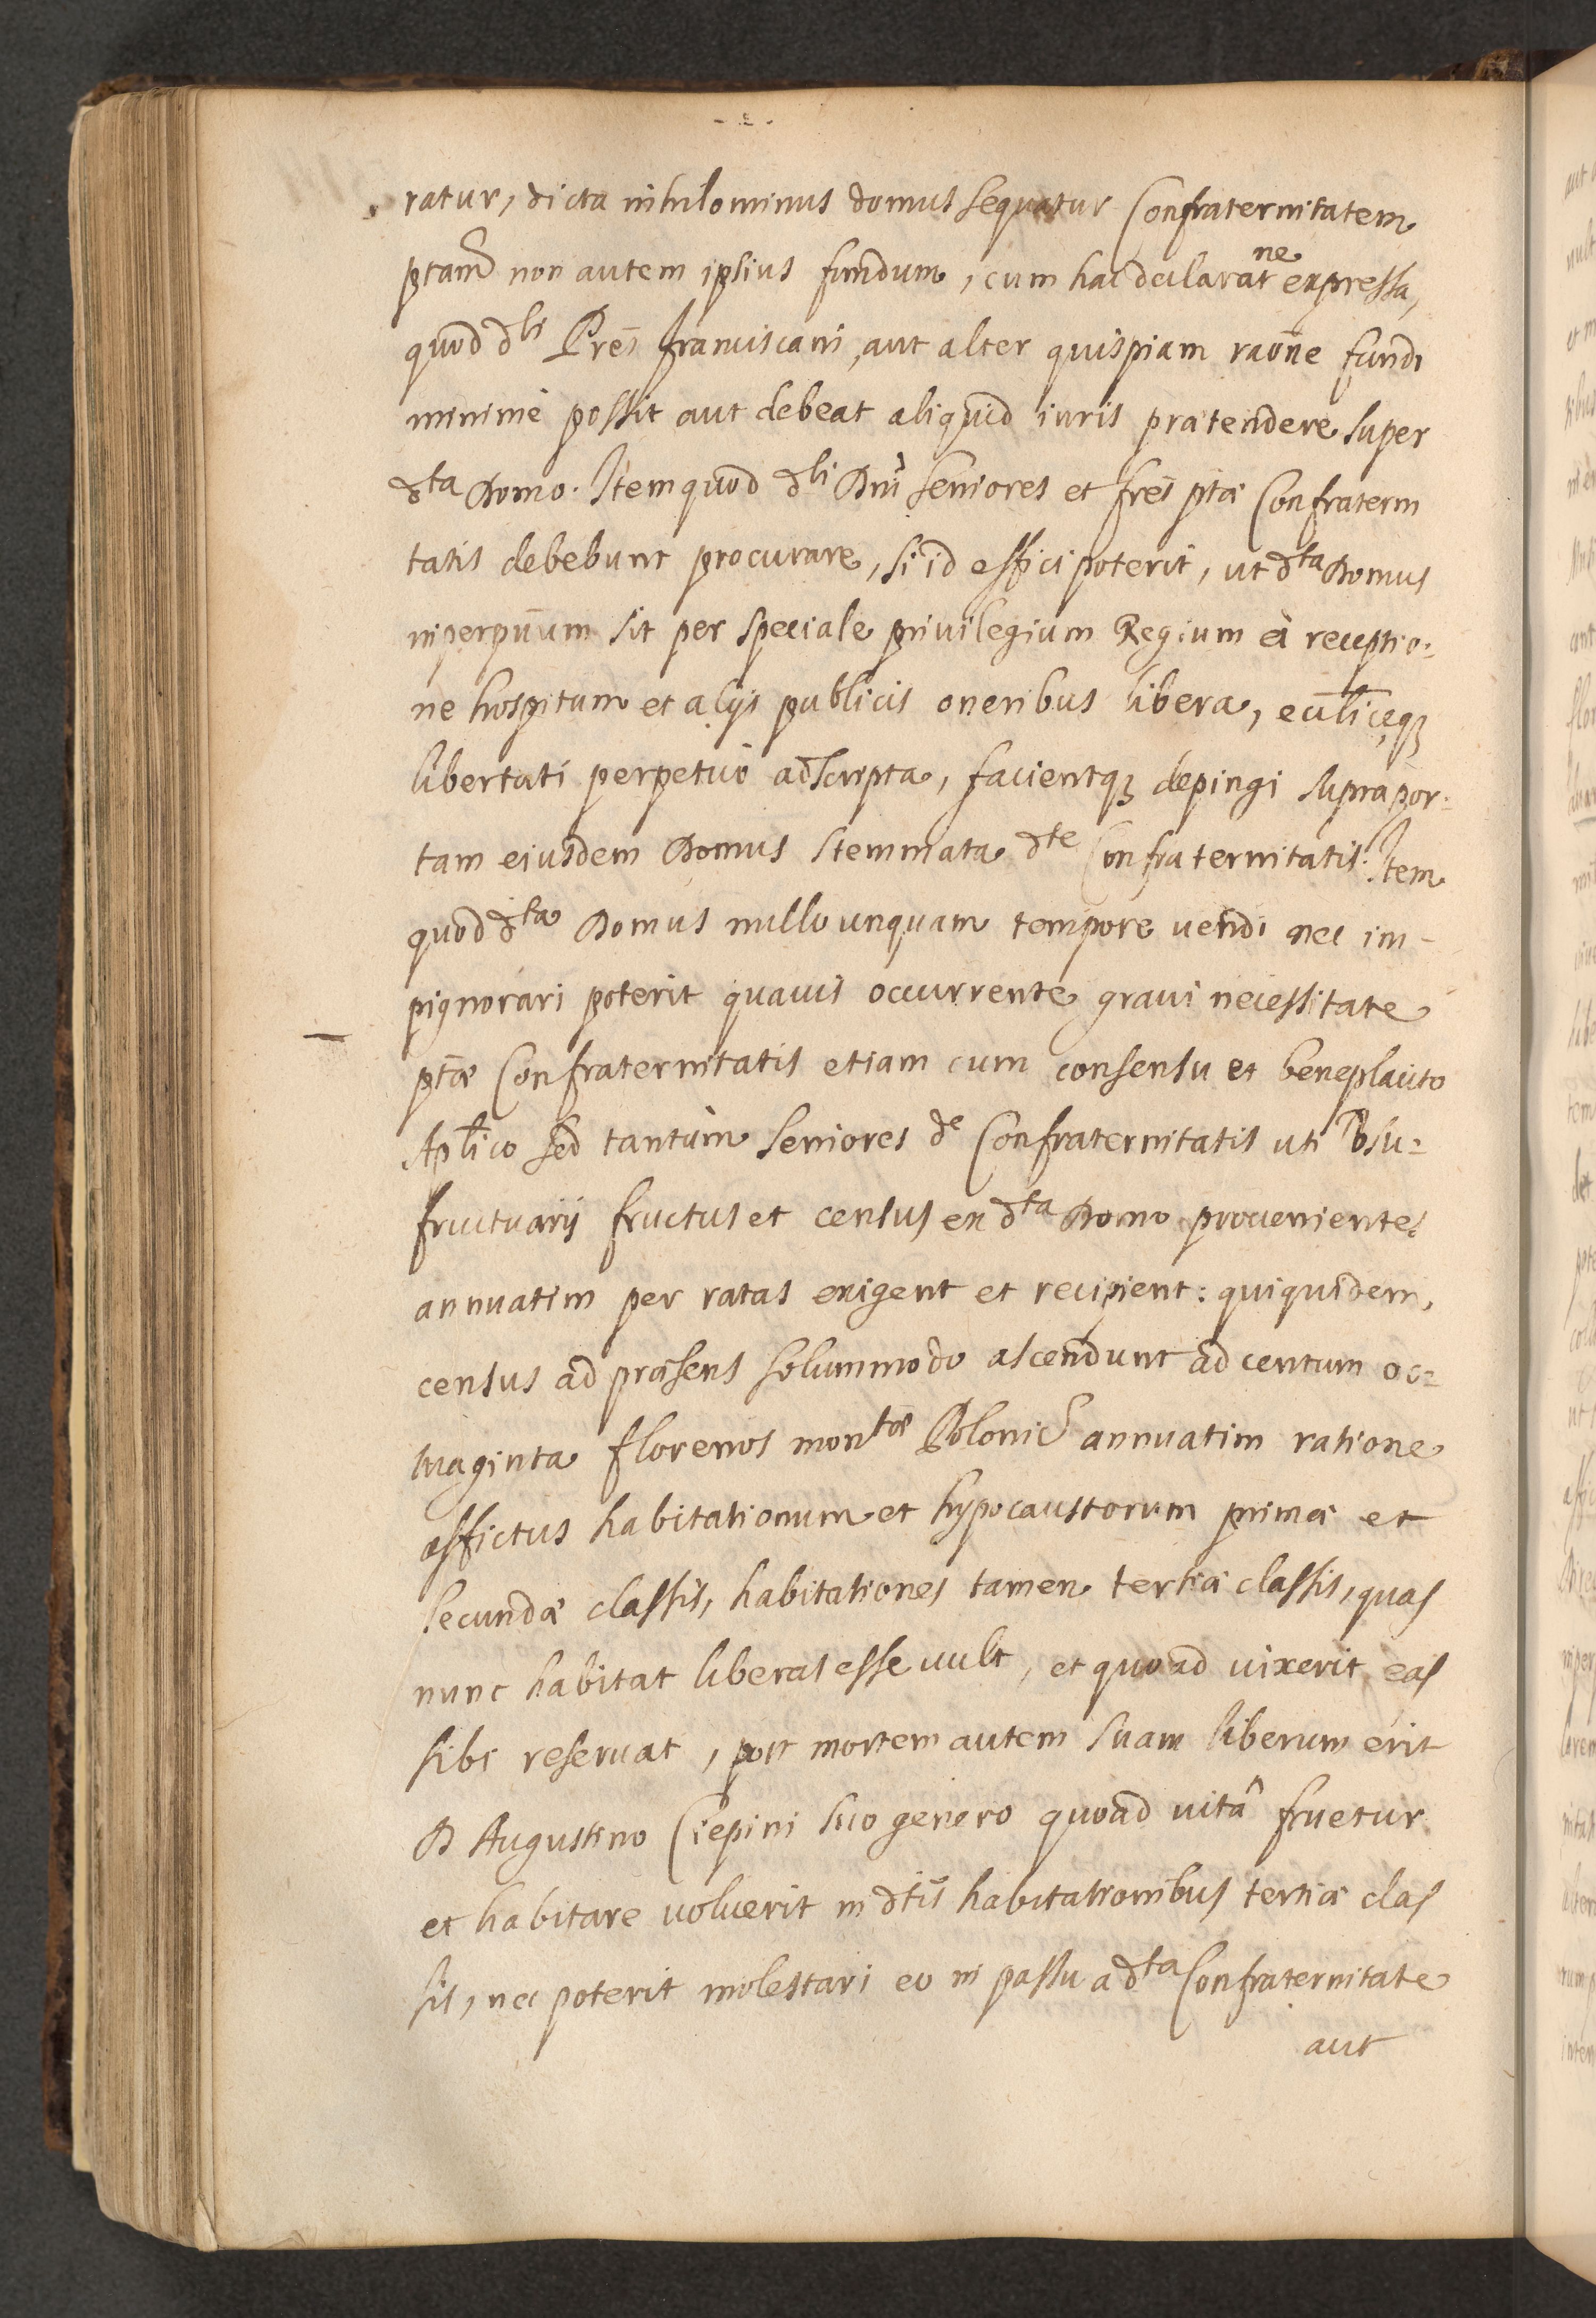 ratur, dicta nihilominus domus sequatur Confraternitatem
ptam non autem ipsius fundum, cum hac declarat^ne expressa,
quod d^li Pres Franciscani, aut alter quispiam raone fundi
minimè possit aut debeat aliquid iuris prætendere super
d^ta Domo. Item quod d^li Dni Seniores et fres ptæ Confraterni
tatis debebunt procurare, si id effici poterit, ut d^ta Domus
inperpuum sit per speciale privilegium Regium à receptio:
ne hospitum et alijs publicis oneribus libera, eccliceq3
libertati perpetuò adscripta, facientq3 depingi supra por:
tam eiusdem Domus stemmata d^te Confraternitatis. Item
quod d^ta Domus nullo unquam tempore vendi nec im-
pignorari poterit quavis occurrente gravi necessitate
ptæ Confraternitatis etiam cum consensu et beneplacito
Aplico sed tantùm Seniores d^e Confraternitatis uti Usu:
fructuarij fructus et census ex d^ta Domo provenientes
annuatim per ratas exigent et recipient: quiquidem,
census ad præsens solummodo ascendunt ad centum oc:
tuaginta florenos mon^tæ Polonic annuatim ratione
affictus habitationum et hypocaustorum primæ et
secundæ classis, habitationes tamen tertiæ classis, quas
nunc habitat liberas esse vult, et quoad vixerit eas
sibi reservat, post mortem autem suam liberum erit
D Augustino Ciepini suo genero quoad vitâ fruetur
et habitare voluerit in dtis habitationibus tertiæ clas
sis, nec poterit molestari eo in passu a d^ta Confraternitate
aut